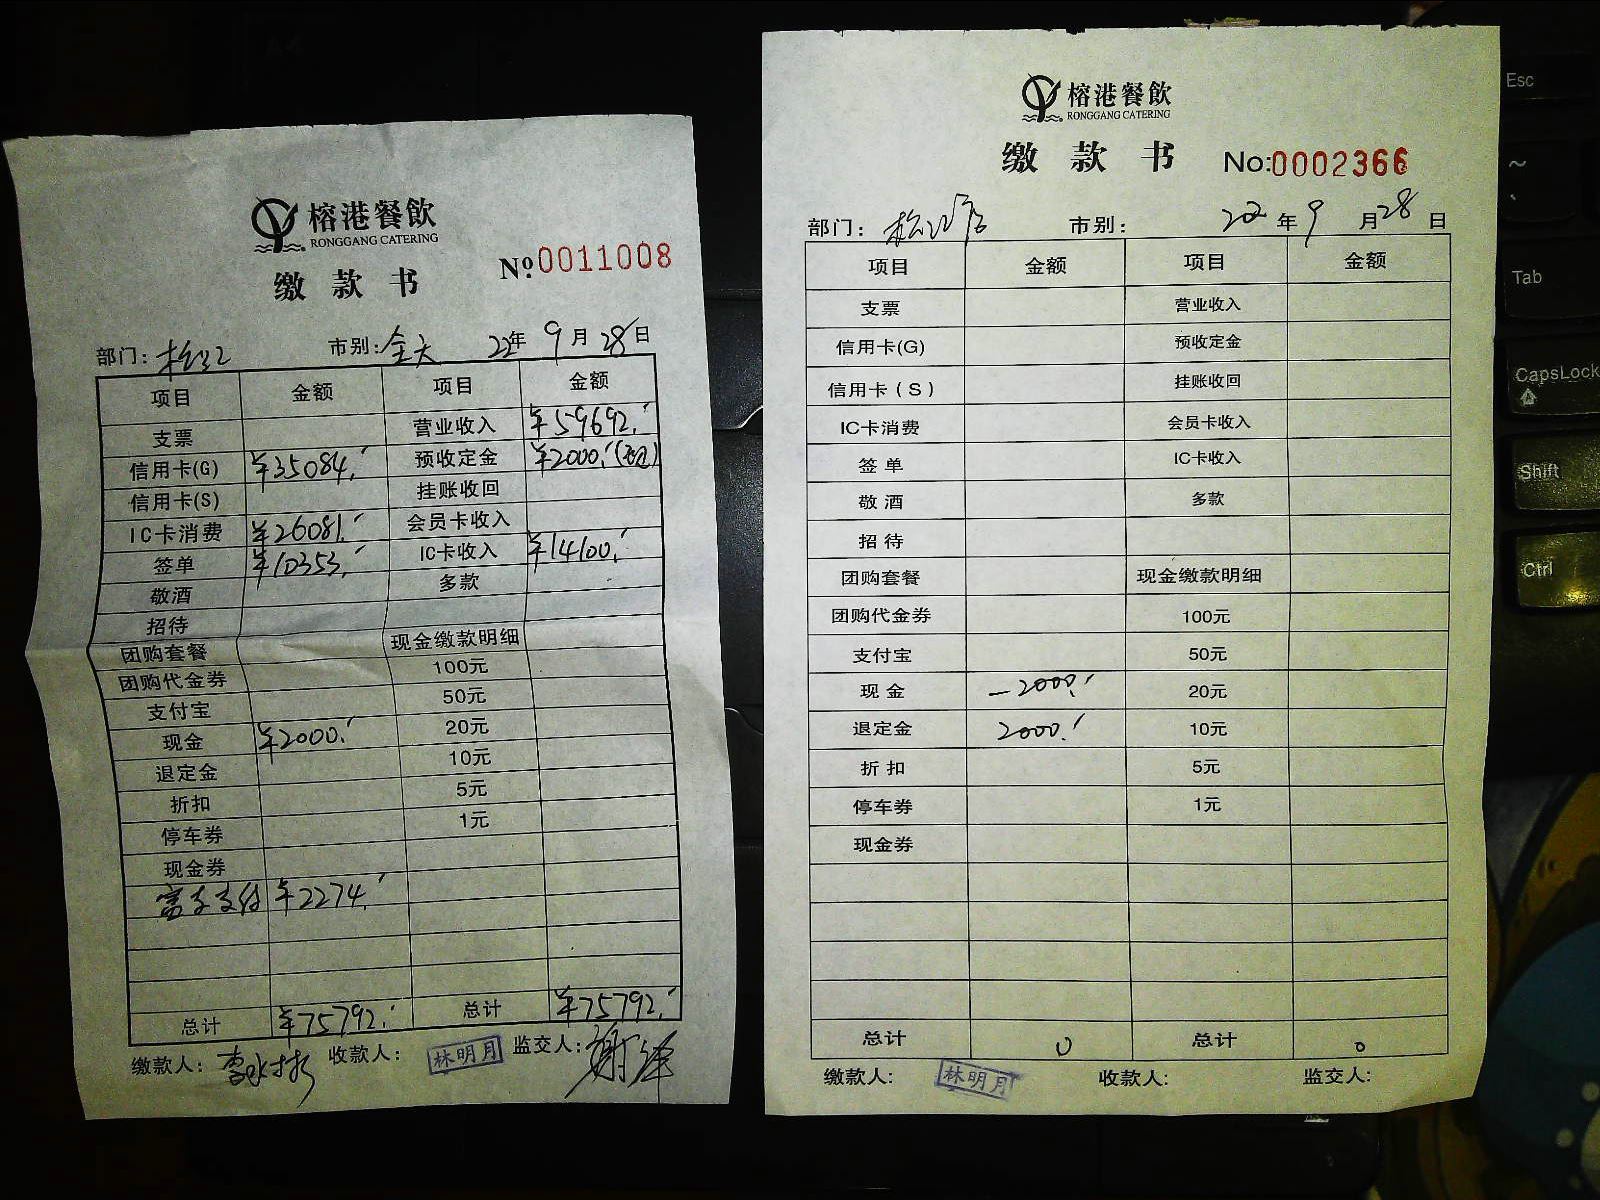 榕港餐飲
RONGGANG CATERING
缴款书
Nº 0011008
部门: 松江 市别: 全天 22年 9月 28日
项目 金额 项目 金额
支票 营业收入 ¥59692.-
信用卡(G) ¥35084.- 预收定金 ¥2000.-
信用卡(S) 挂账收回
IC卡消费 ¥26081.- 会员卡收入
签单 ¥10353.- IC卡收入 ¥14100.-
敬酒 多款
招待
团购套餐 现金缴款明细
团购代金券 100元
支付宝 50元
现金 ¥2000.- 20元
退定金 10元
折扣 5元
停车券 1元
现金券
支付 ¥2274.-
总计 ¥75792.- 总计 ¥75792.-
缴款人: 收款人: 林明月 监交人:
榕港餐飲
RONGGANG CATERING
缴款书 No:0002366
部门: 松江店 市别: 2022年 9月 28日
项目 金额 项目 金额
支票 营业收入
信用卡(G) 预收定金
信用卡(S) 挂账收回
IC卡消费 会员卡收入
签单 IC卡收入
敬酒 多款
招待
团购套餐 现金缴款明细
团购代金券 100元
支付宝 50元
现金 -2000.- 20元
退定金 2000.- 10元
折扣 5元
停车券 1元
现金券
总计 0 总计 0
缴款人: 林明月 收款人: 监交人:
Esc
~
Tab
CapsLock
Shift
Ctrl